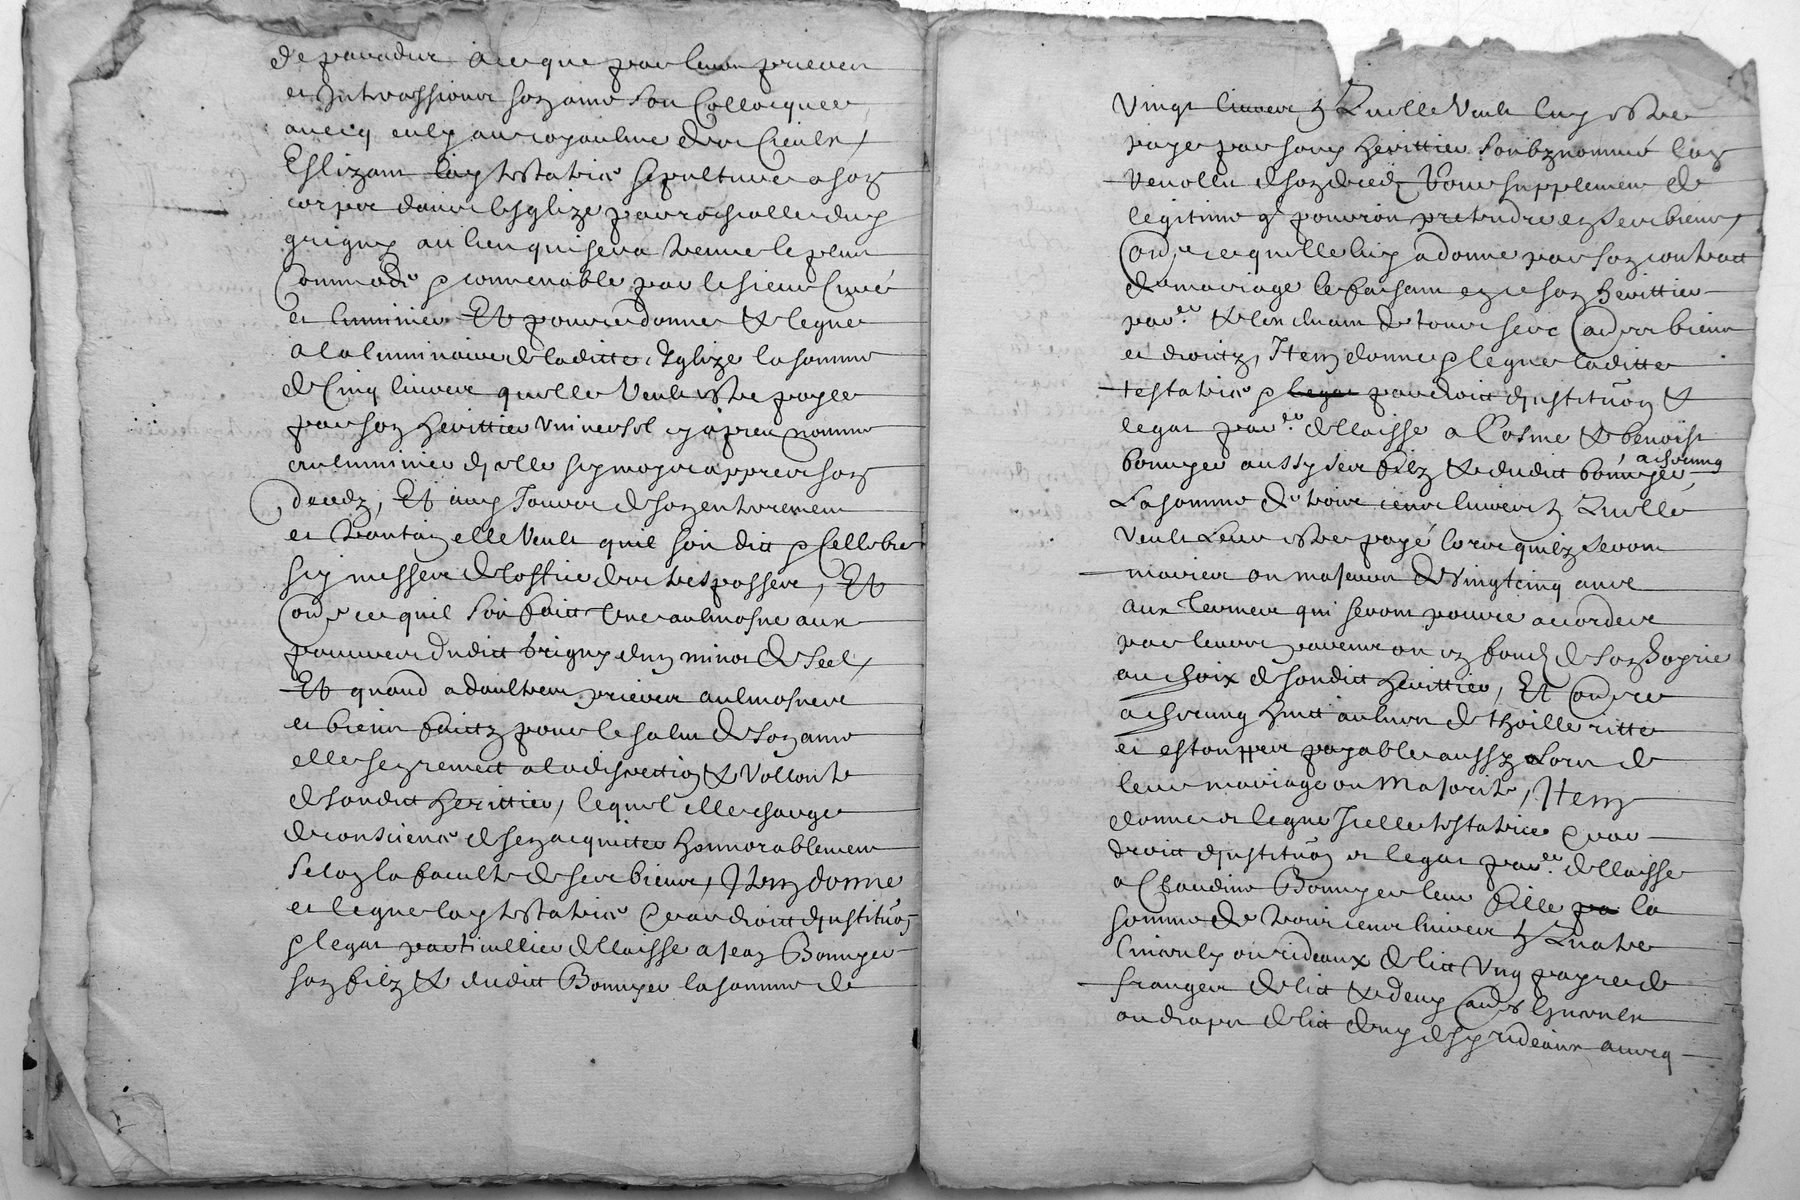 de paradis a ce que par leurs prieres
et Intercessions son ame soit Collocquee
avecq eulx au royaulme des Cieulx,
Eslizant lad testatrice sepulture a son
corps dans lesglize parrochialle dud
grigny au lieu qui sera treuve le plus
Commode & convenable par le sieur Curé
et luminier Et pour ce donne & legue
a la luminaire de laditte Esglize la somme
de Cinq livres quelle Veult estre payee
par son herittier universel cy apres nomme
au luminier dicelle six moys appres son
deceds, Et aux Jours de son enterrement
et trantain elle Veult quil soit dict & Cellebre
six messes de loffice des trespasses, Et
oultre ce quil soit faict Une aulmosne aux
pauvres dudict Grigny dun minot de seel,
Et quand a daultres prieres aulmosnes
et biens faictz pour le salut de son ame
elle sen remect a la discretion & Vollonte
de sondict herittier, lequel elle charge
de consience de sen acquitter honnorablement
selon la faculte de ses biens, Item donne
et legue lad testatrice par droict dinstituon
& legat particullier dellaisse a Jean Bonnyer
son filz & dudict Bonnyer la somme de
Vingt livres t Quelle Veult luy estre
paye par sond herittier soubznommé lan
revollu de son deceds Pour supplement de
legitime q pourroit pretendre en ses biens,
oultre ce quelle luy a donne par son contract
de mariage le faisant en ce son herittier
par.er & lexcluant de tous ses aultres biens
et droictz, Item donne & legue laditte
testatrice & legat par droict dinstituon &
legat par.er dellaisse a Cosme & benoist
bonnyer aussy ses filz & dudict bonnyer, a chacung
La somme de trois cens livres t Quelle
Veult Leur estre payé lors quilz seront
maries ou majeurs de Vingtcinq ans
aux Termes qui seront pour ce accordes
par leurs parens ou en fondz de son hoyrie
au choix de sondict herittier, Et oultre ce
a chacung huict aulnes de thoille ritte
et estouppes payable aussy Lors de
leur mariage ou Majorite, Item
donne et legue Icelle testatrice par
droict dinstituon et legat par.er dellaisse
a Claudine Bonnyer leur fille pa la
somme de trois cens livres t Quatre
linceulx ou rideaux de lict Ung payre de
franges de lict & deux aultres linceulx
ou draps de lict deux desd rideaux avecq